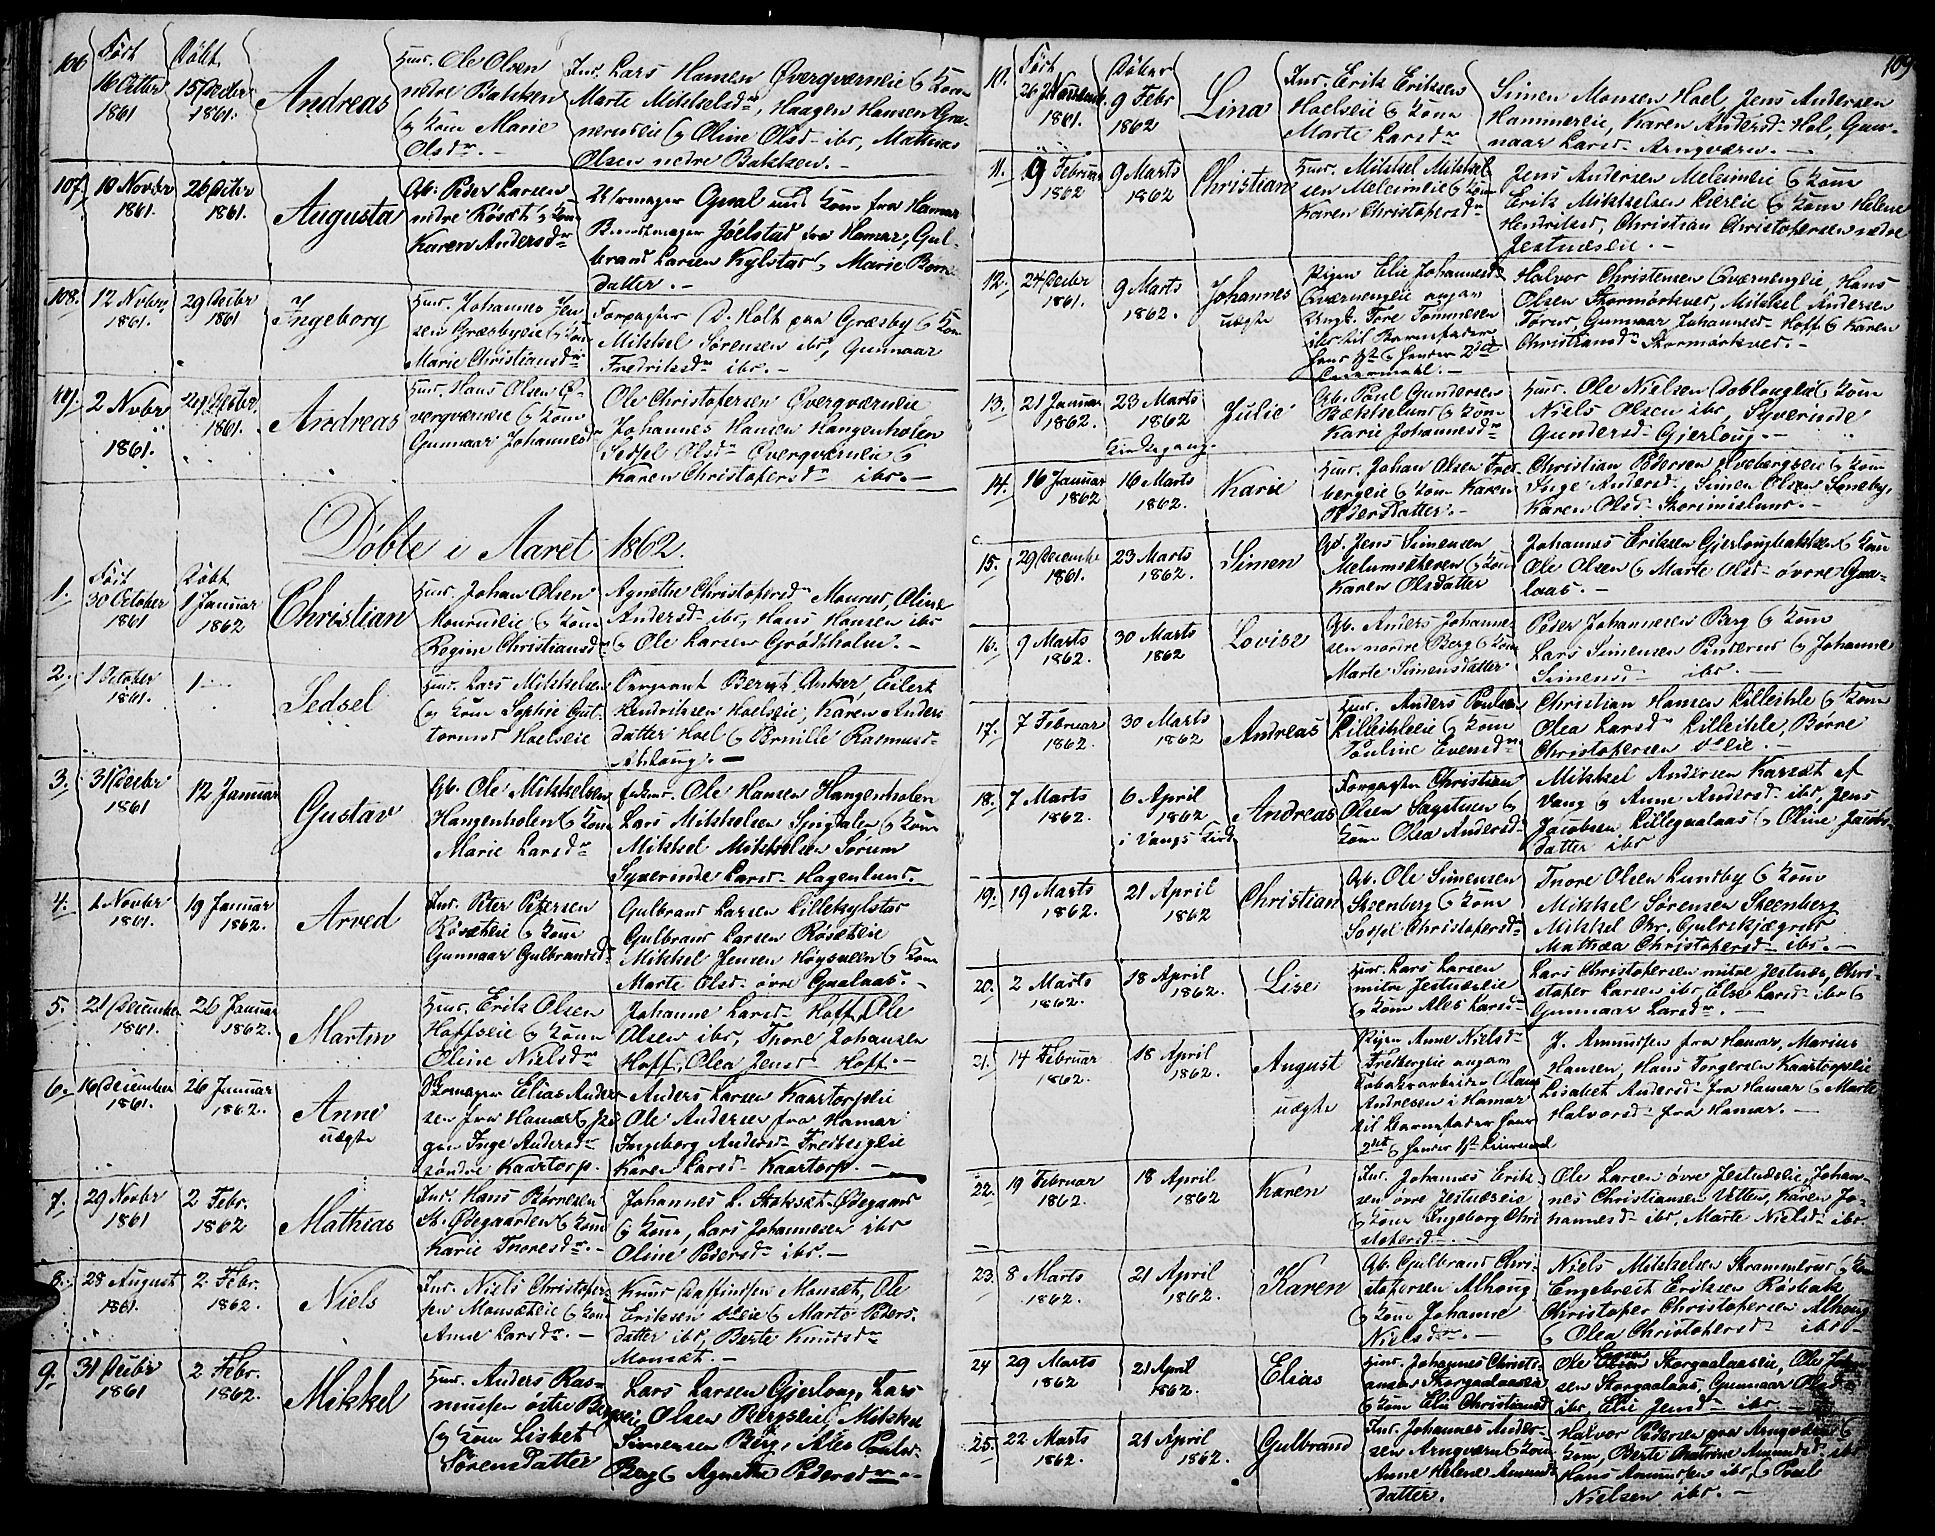 106
Født
16 Octbr
1861
Døbt
15 Decbr
1861.
Andreas
Huus. Ole Olsen
nedre Bakken
og Kone Marie
Olsdr. —
Inds. Lars Hansen Øvergværneie & Kone
Marte Mikkelsdr, Haagen Hansen
og Oline Olsd. ibr, Mathias
Olsen nedre Bakken. —
107.
10 Novbr
1861.
26 Decbr
1861.
Augusta
Gb. Peder Larsen
nedre Røsæt & Kone
Karen Andersdr
Qval med Kone fra Hamar
Bundtmager Joelstad fra Hamar, Gul-
brand Larsen Kylstad & Marie Børre
datter. —
108.
12 Novbr
1861.
29 Decbr
1861
Ingeborg
Huus. Johannes Jen-
sen Græsbyeie & Kone
Marie Christiansdr
Forpagter D. Holt paa Græsby & Kone
Mikkel Sørensen ibr, Gunnaar
Fredriksdr ibr. —
109.
2 Novbr
1861.
29 Decbr.
1861.
Andreas
Huus. Hans Olsen Ø-
vergværneie & Kone
Gunnaar Johannesdr
Ole Christophersen Øvergværneie
Johannes Hansen Hangenholen
Sedsel Olsdr Øvergværneie &
Karen Christophersdr ibr. —
Døbte i Aaret 1862.
1.
Født
30 October
1861
Døbt
1 Januar
1862
Christian
Huus. Johan Olsen
& Kone
Regine Christiansdr
Agnethe Christophersdr Maurud, Oline
Andersd. ibr, Hans Hansen ibr
& Ole Larsen Grødsholm. —
2.
1 October
1861.
1 —
Sedsel
Huus. Lars Mikkelsen
og Kone Sophie Gut-
tormsd Hoelseie
Sergeant Bernt Anker, Eilert
Hendriksen Hoelseie, Karen Anders
datter Hoel & Pernille Rasmusd.
3.
31 Decbr
1861
12 Januar
Gustav
Gb. Ole Mikkelsen
Hangenholen & Kone
Marie Larsdr
Ole Hansen Hangenholen
Lars Mikkelsen Spigdalen & Kone
Mikkel Mikkelsen Sorum
Syverinde Larsd. Hagenlund.
4.
1 Novbr
1861.
19 Januar
1862.
Arved
Inds. Peter Petersen
Røsæteie & Kone
Gunnaar Gulbrandsdr
Gulbrand Larsen Lillekylstad
Gulbrand Larsen Røsæteie
Mikkel Jensen Høgsveen & Kone
Marte Olsd. øvre Gaalaas. —
5.
21 December
1861.
26 Januar
1862.
Martin
Huus. Erik Olsen
Hoffseie & Kone
Oline Nielsdr
Johanne Larsd. Hoff, Ole
Olsen ibr, Thore Johansen
Hoff, Olea Jensd. Hoff. —
6.
16 December
1861.
26 Januar
1862.
Anne
uægte
Elias Ander-
sen fra Hamar & Pi-
gen Inge Andersdr
søndre Kaartorp.
Anders Larsen Kaartorpeie
Ole Andersen fra Hamar
Ingeborg Andersd. Fredbergeie
Karen Larsd. Kaartorp. —
7.
29 Novbr
1861
2 Febr.
1862
Mathias
Inds. Hans Børresen
St. Ødegaarden & Kone
Karie Thoresdr. —
Johannes L. Stoksæt-Ødegaard
& Kone, Lars Johannesen ibr
Oline Pedersd. ibr. —
8.
28 August
1861.
2 Febr.
1862.
Niels
Inds. Niels Christopher-
sen Monsæteie & Kone
Anne Larsdr. —
Knud Daffindsen Monsæt, Ole
Eriksen deie & Marte Peders-
datter ibr, Berte Knudsdr
Monsæt. —
9.
31 Decbr
1861
2 Febr.
1862.
Mikkel
Huus. Anders Ras-
mussen østre Bergseie
og Kone Lisbet
Sørensdatter
Lars Larsen Gjerloug, Lars
Olsen Bergseie, Mikkel
Simensen Berg, Ales Poulsd.
Berg & Agnethe Pedersdr —
109
10.
Født
26 Novembr
1861.
Døbt
9 Febr
1862
Lina
Inds. Erik Eriksen
Hoelseie & Kone
Marte Larsdr
Simen Monsen Hoel, Jens Andersen
Hammereie, Karen Andersd. Hol, Gun-
naar Larsd. Arngværn. —
11.
9 Februar
1862
9 Marts
1862
Christian
Huus. Mikkel Mikkel-
sen Melumeie & Kone
Karen Christophersdr
Jens Andersen Melumeie & Kone
Erik Mikkelsen & Kone Helene
Hendriksd, Christian Christophersen nedre
Jestnæseie. —
12.
24 Decbr
1861.
9 Marts
1862.
Johannes
uægte
Pigen Elie Johannesdr
Qværnengeie angav
Ungk. Tore Tommesen
ibr til Barnefader
hans 1ste & hendes 2det
Leiermaal. —
Halvor Christensen Qværnengeie, Hans
Olsen Skormørkved, Mikkel Andersen
Torud, Gunnaar Johannesd. Hoff & Karen
Christiansdr Skormørkved. —
13.
21 Januar
1862.
23 Marts
1862
Julie
Gb. Poul Gundersen
Bækkelund & Kone
Karie Johannesdr
Huus. Ole Nielsen Dobloug & Kone
Niels Olsen ibr, Syverinde
Gundersd. Gjerloug. —
14.
16 Januar
1862
16 Marts
1862.
Karie
Huus. Johan Olsen Fred-
bergeie & Kone Karen
Pedersdatter. —
Christian Pedersen & Kone
Inge Andersd., Simen Olsen Soneby,
Karen Olsd. Skorimislund. —
15.
29 Decembr
1861.
23 Marts
1862.
Simen
Gd. Jens Simensen
Melumskeren & Kone
Karen Olsdatter
Johannes Eriksen Gjerlougbakken & Kone
Ole Olsen & Marte Olsd. øvre Gaa-
laas. —
16.
9 Marts
1862.
30 Marts
1862
Lovise
Gb. Anders Johanne-
sen nordre Berg & Kone
Marte Simensdatter
Peder Johannesen Berg & Kone
Lars Simensen Pinderud & Johanne
Simensd. ibr. —
17.
7 Februar
1862.
30 Marts
1862
Andreas
Huus. Anders Poulsen
Lilleihleeie & Kone
Pauline Evensdr
Christian Hansen Lilleihle & Kone
Olea Larsdr Lilleihle, Børre
Christophersen deie. —
18.
7 Marts
1862.
6 April
1862
i Vangs Kirke
Andreas
Forpagter Christian
Olsen Sagstuen &
Kone Olea Andersd.
Mikkel Andersen Karset af
Vang & Anne Andersd. ibr, Jens
Jacobsen Lillegaalaas & Oline Jacobs-
datter ibr
19.
19 Marts
1862.
21 April
1862
Christian
Gb. Ole Simensen
Steenberg & Kone
Sedsel Christophersd.
Thore Olsen Lundby & Kone
Mikkel Sørensen Steenberg
Mikkel Chr. Gulrikjægret
Mathea Christophersd. ibr. —
20.
2 Marts
1862.
18 April
1862.
Lise
Huus. Lars Larsen
mitre Jestnæseie
& Kone Ales Larsd.
Lars Christophersen mitre Jestnæs, Chri-
stopher Larsen ibr, Else Larsd. ibr &
Gunnaar Larsdr. —
21.
14 Februar
1862.
18 April
1862.
August
uægte
Pigen Anne Nielsd.
Fredbergeie angav
Tobaksarbeider Olaus
Andresen i Hamar
til Barnefader hans
2det & hendes 1ste Leiermaal
J. Amundsen fra Hamar, Marius
Hansen, Hans Torgersen Kaartorpeie
Lisabet Andersd. fra Hamar & Marte
Halvorsd. fra Hamar. —
22.
19 Februar
1862.
18 April
1862
Karen
Inds. Johannes Erik-
sen øvre Jestnæseie
& Kone Ingeborg Chri-
stophersd. —
Ole Larsen øvre Jestnæseie, Johan-
nes Christiansen Vetten, Karen Jo-
hannesd. ibr, Marte Nielsd. ibr.
23.
8 Marts
1862.
21 April
1862.
Karen
Gb. Gulbrand Chri-
stophersen Alhoug
& Kone Johanne
Nielsdr. —
Niels Mikkelsen Strammerud & Kone
Engebret Eriksen Røsbak
Christopher Christophersen Alhoug
& Olea Christophersd. ibr —
24
29 Marts
1862
21 April
1862.
Elias
Huus. Johannes Christi-
ansen Storgaalaaseie
& Kone Elie Christiansd
Ole Larsen Storgaalaaseie, Ole Johan-
sen Storgaalaas, Gunnaar Olsd.
ibr, Elie Jensd. ibr. —
25.
22 Marts
1862.
21 April
1862.
Gulbrand
Inds. Johannes Ander-
sen Arngværn & Kone
Anne Helene Amunds-
datter.
Halvor Pedersen Arngværn &
Kone, Berte Amundsd. ibr
Hans Amundsen ibr, & Poul
Nielsen ibr. —